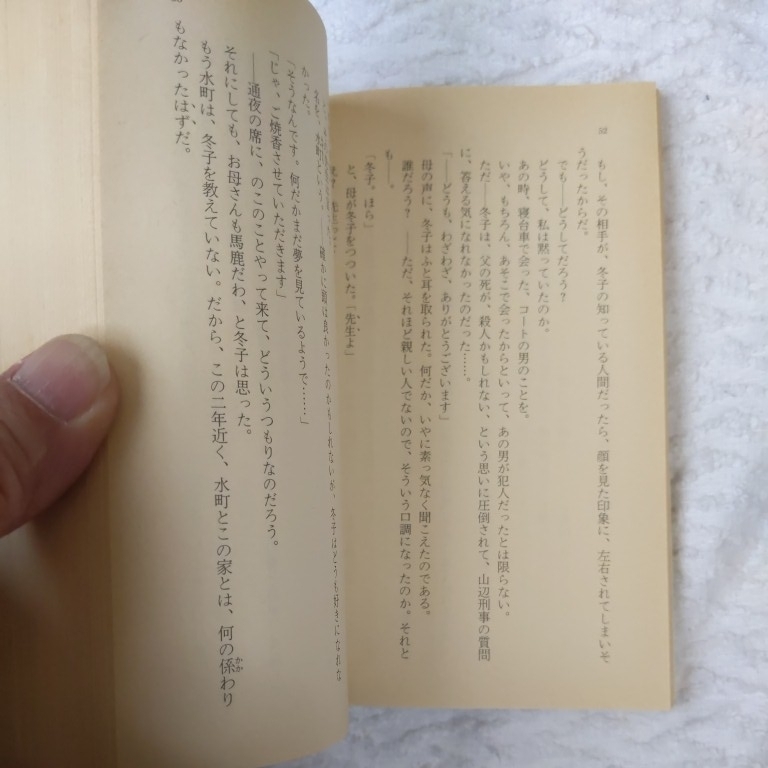 52
もし、その相手が、冬子の知っている人間だったら、顔を見た印象に、左右されてしまいそ
うだったからだ。
でも――どうしてだろう？
どうして、私は黙っていたのか。
あの時、寝台車で会った、コートの男のことを。
いや、もちろん、あそこで会ったからといって、あの男が犯人だったとは限らない。
ただ――冬子は、父の死が、殺人かもしれない、という思いに圧倒されて、山辺刑事の質問
に、答える気になれなかったのだった……。
「――どうも、わざわざ、ありがとうございます」
母の声に、冬子はふと耳を取られた。何だか、いやに素っ気なく聞こえたのである。
誰だろう？　――ただ、それほど親しい人でないので、そういう口調になったのか。それと
も――。
「冬子。ほら」
と、母が冬子をつついた。「先生よ」
は良かったのかもしれないが、冬子はどうも好きになれな
かった。
「そうなんです。何だかまだ夢を見ているようで……」
「じゃ、ご焼香させていただきます」
――通夜の席に、のこのことやって来て、どういうつもりなのだろう。
それにしても、お母さんも馬鹿だわ、と冬子は思った。
もう水町は、冬子を教えていない。だから、この二年近く、水町とこの家とは、何の係わり
もなかったはずだ。